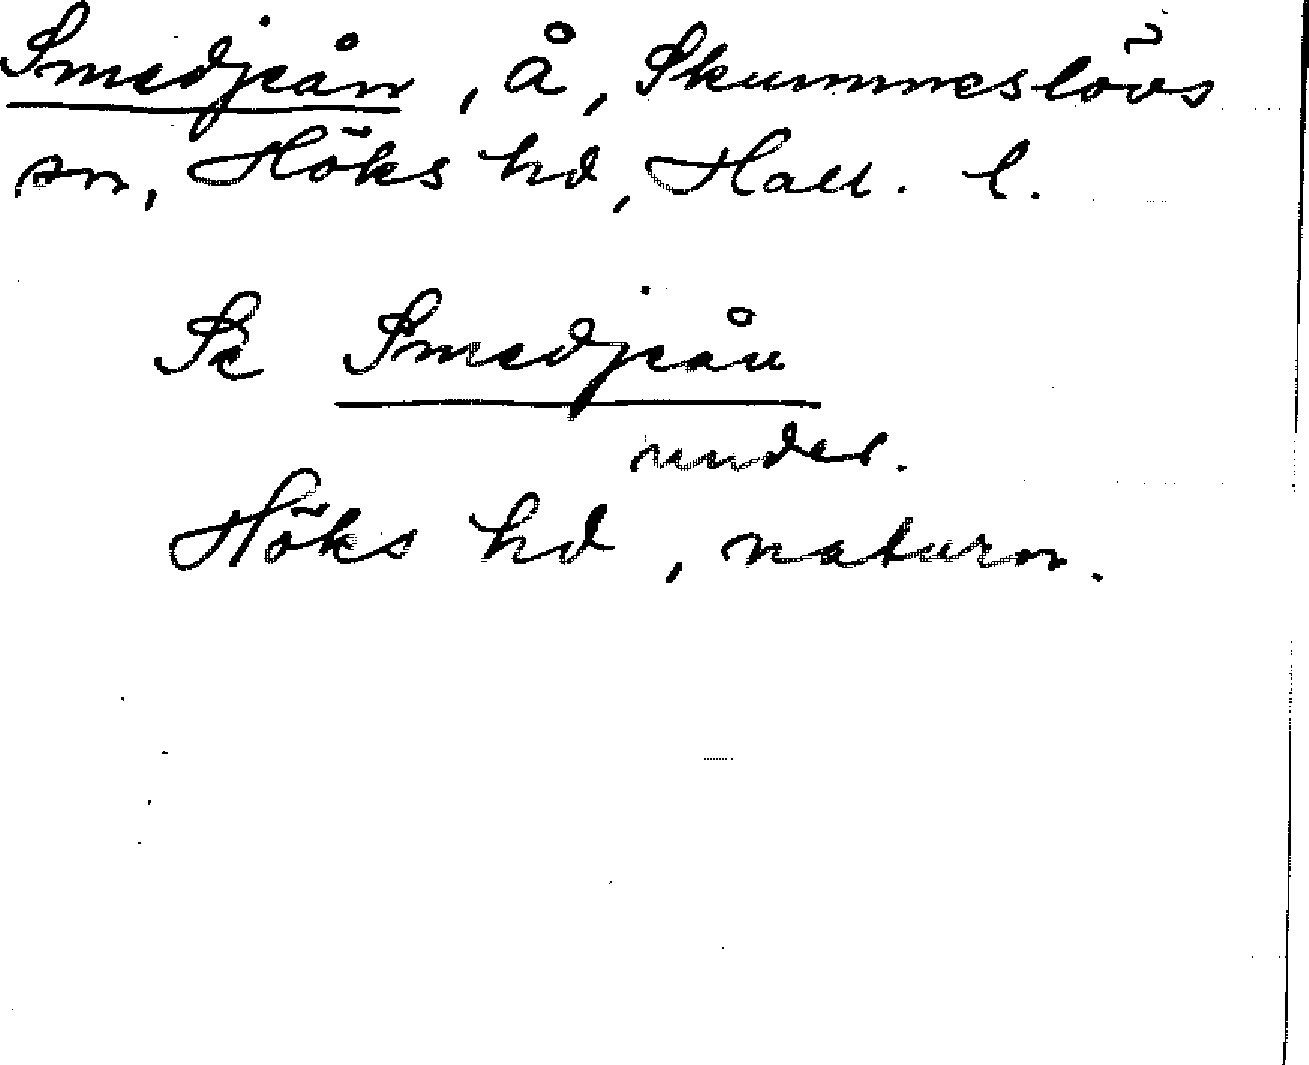 Smedjeån, å, Skummeslövs
sn, Höks hd, Hall. l.
Se Smedjeån
under.
Höks hd, naturn.